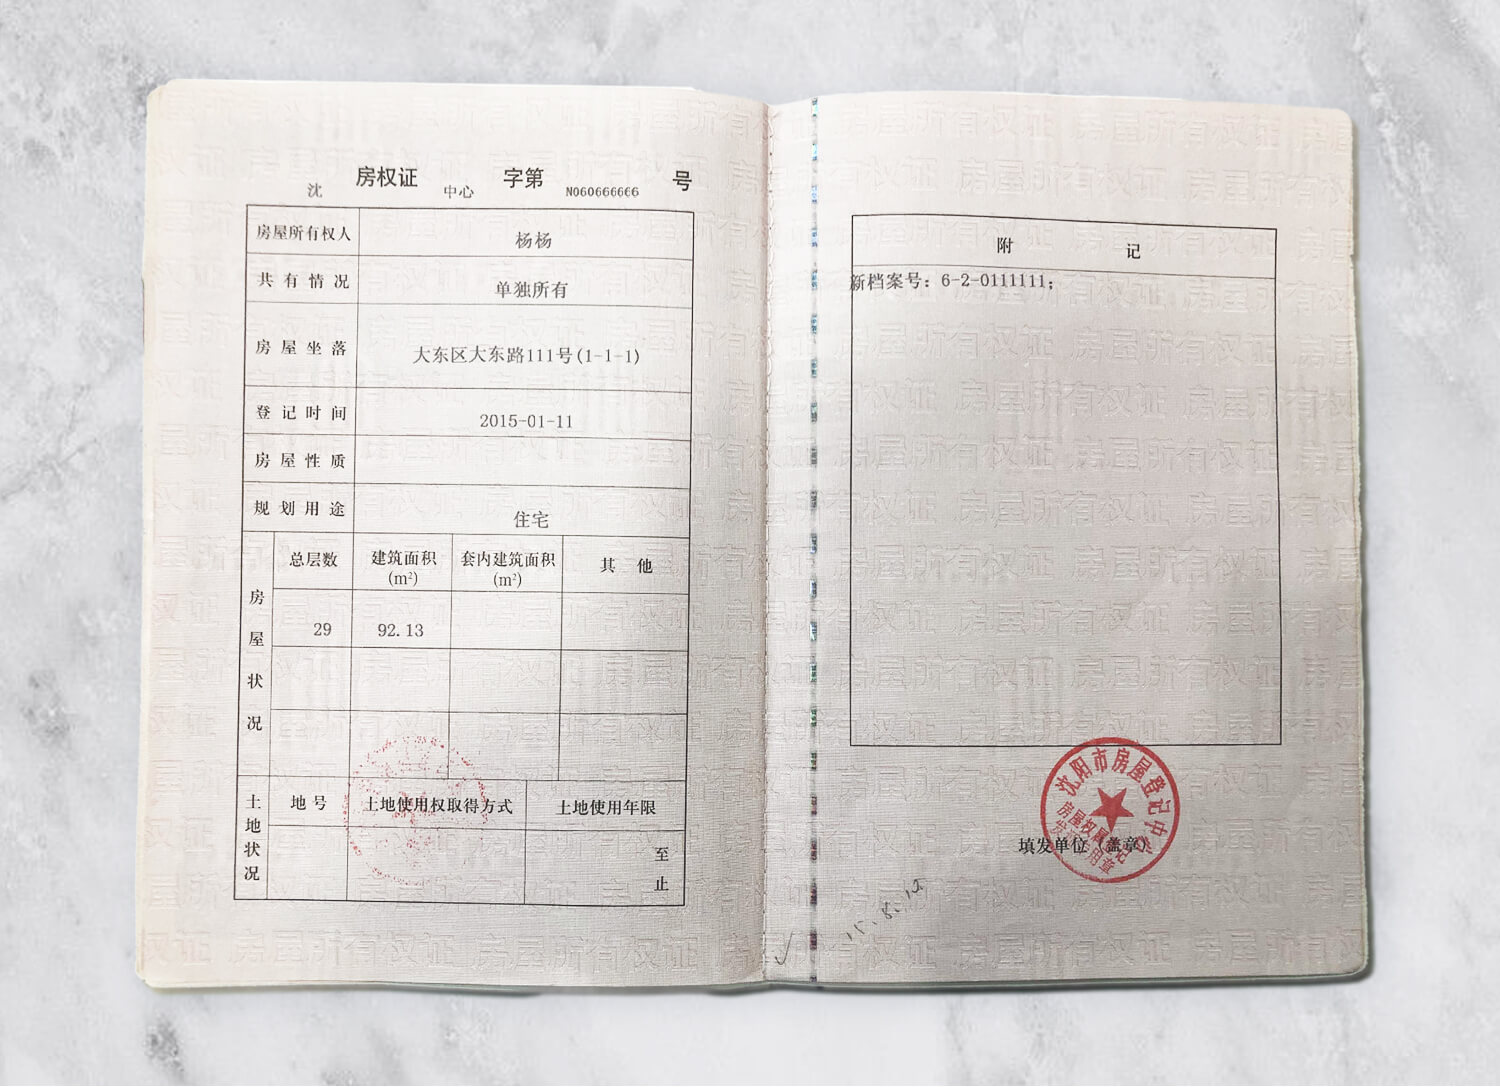 沈 房权证 中心 字第 N060666666 号
房屋所有权人 杨杨
共有情况 单独所有
房屋坐落 大东区大东路111号(1-1-1)
登记时间 2015-01-11
房屋性质
规划用途 住宅
房屋状况
总层数 建筑面积(m²) 套内建筑面积(m²) 其他
29 92.13
土地状况
地号 土地使用权取得方式 土地使用年限
至
止
附 记
新档案号: 6-2-0111111;
沈阳市房屋登记中心
房屋权属登记
填发单位(盖章)
15.8.12